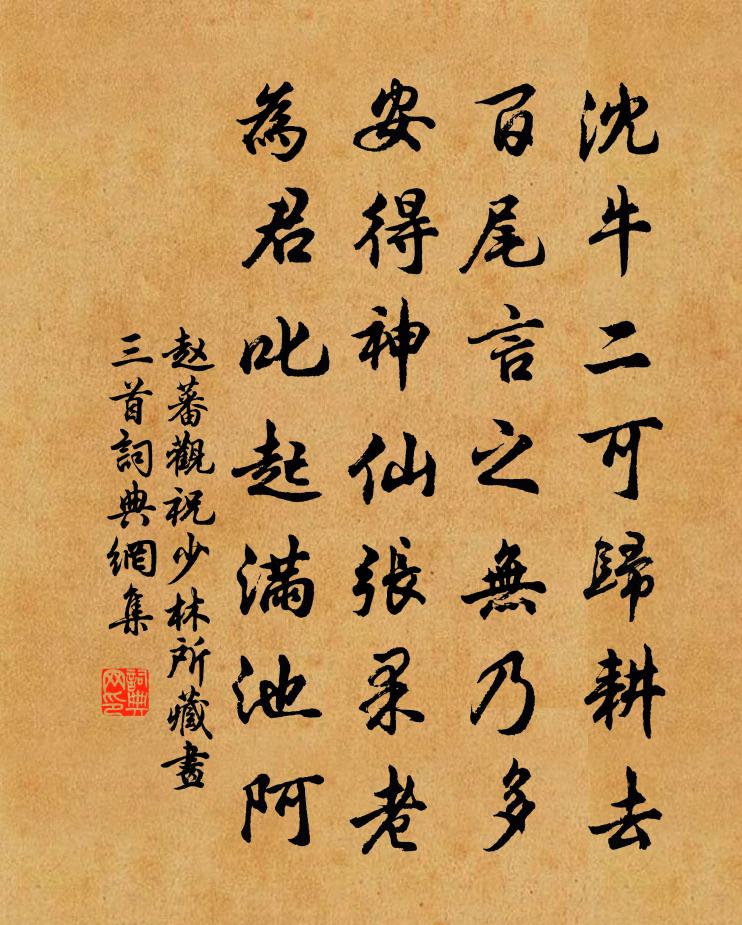 沈牛二可歸耕去
百尾言之無乃多
安得神仙張果老
為君叱起滿池阿
赵蕃觀祝少林所藏畫
三首詞典網集
詞典
网印